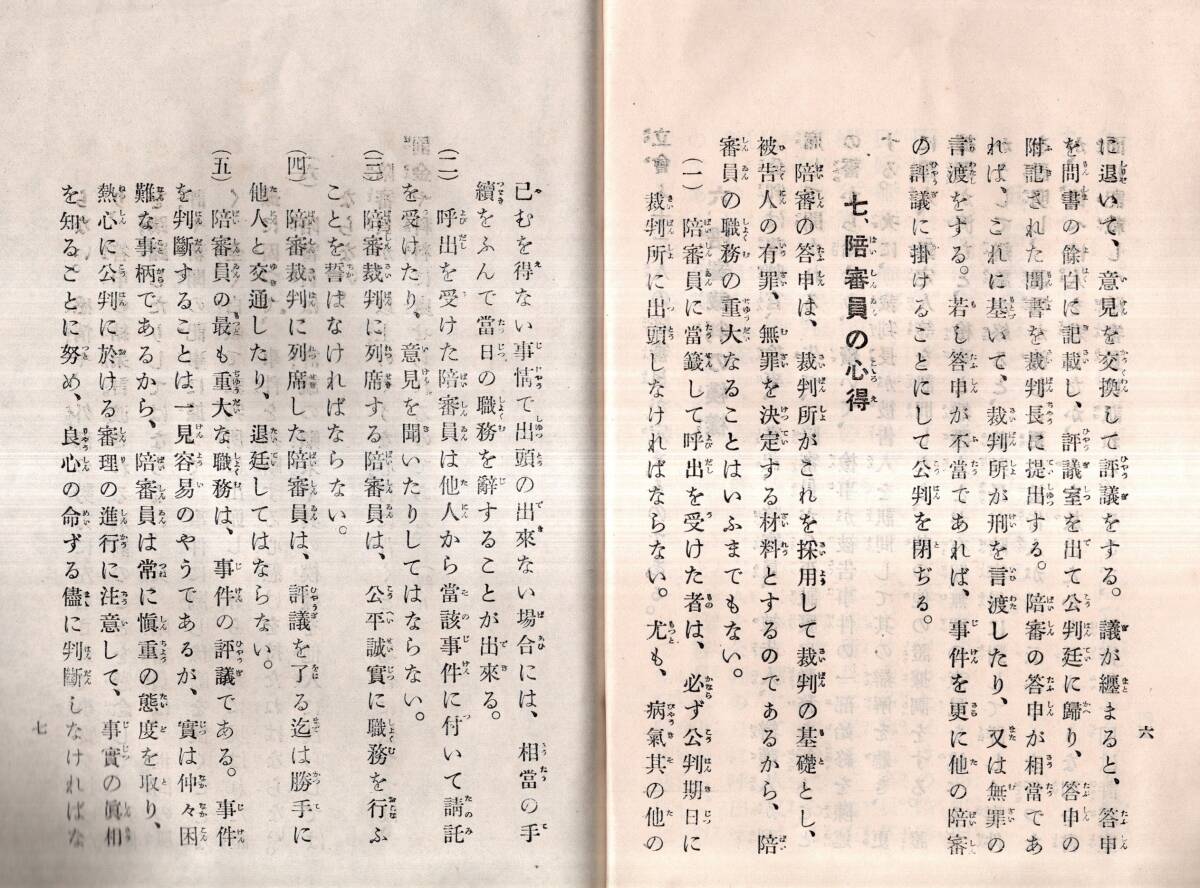 に退いて、意見を交換して評議をする。議が纒まると、答申
を問書の餘白に記載し、評議室を出て公判廷に歸り、答申の
附記された問書を裁判長に提出する。陪審の答申が相當であ
れば、これに基いて、裁判所が刑を言渡したり、又は無罪の
言渡をする。若し答申が不當であれば、事件を更に他の陪審
の評議に掛けることにして公判を閉ぢる。
七、陪審員の心得
陪審の答申は、裁判所がこれを採用して裁判の基礎とし、
被告人の有罪、無罪を決定する材料とするのであるから、陪
審員の職務の重大なることはいふまでもない。
(一) 陪審員に當籤して呼出を受けた者は、必ず公判期日に
裁判所に出頭しなければならない。尤も、病氣其の他の
六
已むを得ない事情で出頭の出來ない場合には、相當の手
續をふんで當日の職務を辭することが出來る。
(二) 呼出を受けた陪審員は他人から當該事件に付いて請託
を受けたり、意見を聞いたりしてはならない。
(三) 陪審裁判に列席する陪審員は、公平誠實に職務を行ふ
ことを誓はなければならない。
(四) 陪審裁判に列席した陪審員は、評議を了る迄は勝手に
他人と交通したり、退廷してはならない。
(五) 陪審員の最も重大な職務は、事件の評議である。事件
を判斷することは一見容易のやうであるが、實は仲々困
難な事柄であるから、陪審員は常に愼重の態度を取り、
熱心に公判に於ける審理の進行に注意して、事實の眞相
を知ることに努め、良心の命ずる儘に判斷しなければな
七